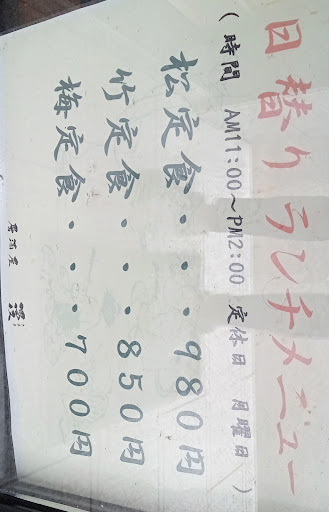 日替りランチメニュー
(時間 AM11:00～PM2:00 定休日 月曜日)
松定食・・・980円
竹定食・・・850円
梅定食・・・700円
居酒屋